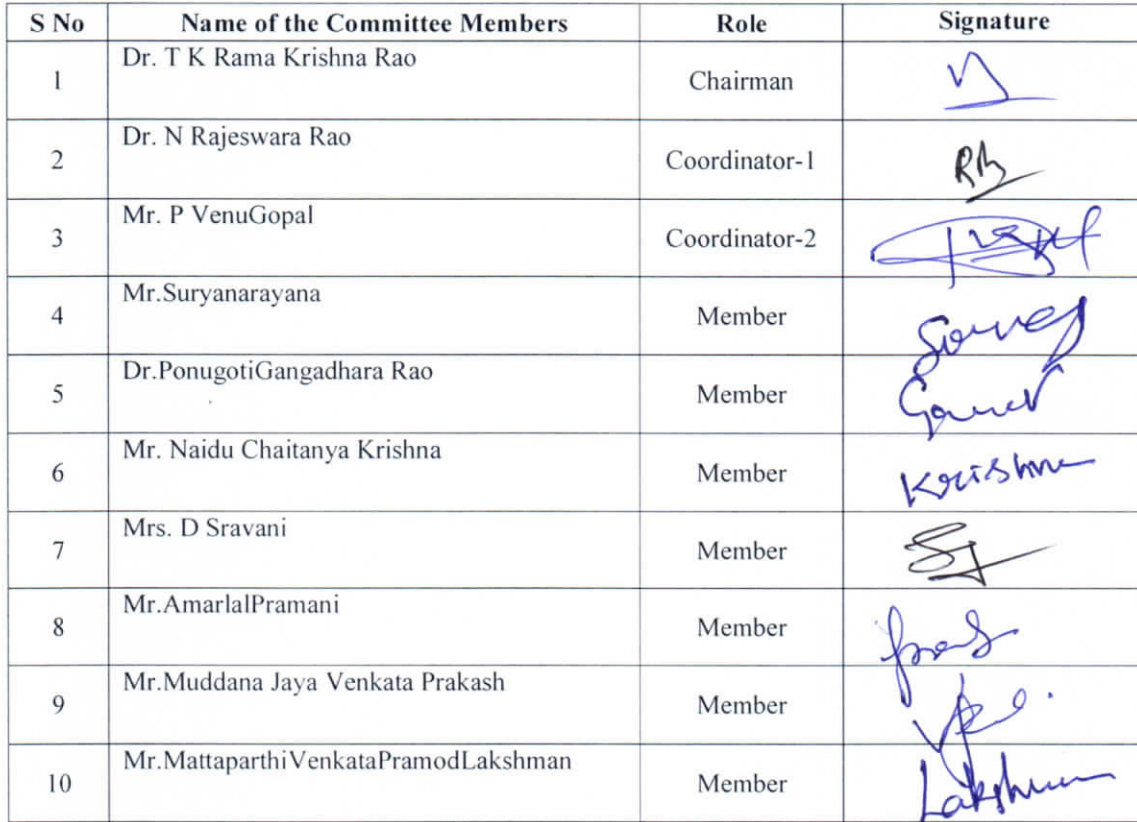 S No Name of the Committee Members Role Signature
1 Dr. T K Rama Krishna Rao Chairman
2 Dr. N Rajeswara Rao Coordinator-1
3 Mr. P VenuGopal Coordinator-2
4 Mr.Suryanarayana Member
5 Dr.PonugotiGangadhara Rao Member
6 Mr. Naidu Chaitanya Krishna Member Krishna
7 Mrs. D Sravani Member
8 Mr.AmarlalPramani Member
9 Mr.Muddana Jaya Venkata Prakash Member
10 Mr.MattaparthiVenkataPramodLakshman Member Lakshman